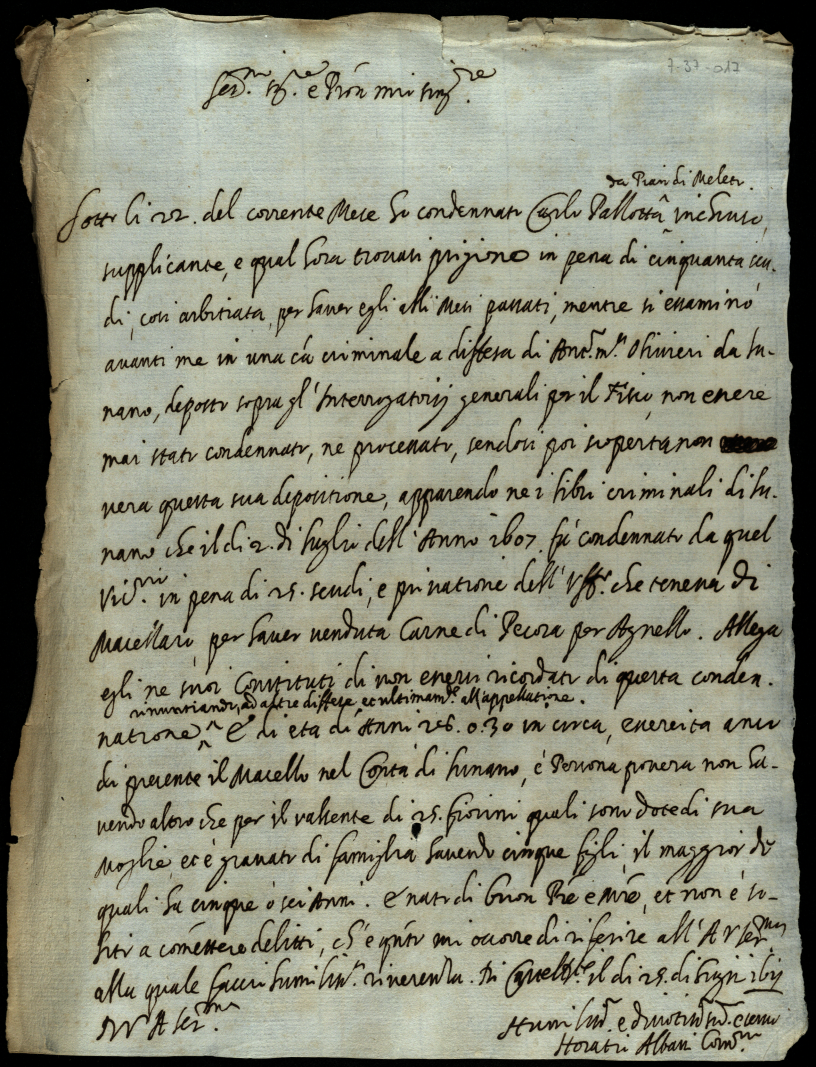 7-37-017
Ser.mo Sig.re e Prōn mio sing.re
da Pian di Meleto.
Sotto li 22. del corrente Mese ho condennato Carlo Pallotta incluso
supplicante, e qual hora trovasi prigione in pena di cinquanta scu-
di, così arbitrata, per haver egli alli Mesi passati, mentre si essaminò
avanti me in una cā criminale a diffesa di Ant.º m.ª Olivieri da Lu-
nano, deposto sopra gl'Interrogatorij generali per il Fisco, non essere
mai stato condennato, ne processato, sendosi poi scoperta non
vera questa sua depositione, apparendo ne i libri criminali di Lu-
nano che il dì 2. di Luglio dell'Anno 1607. fù condennato da quel
in pena di 25. scudi, e privatione dell'Uff.º che teneva di
Macellaro, per haver venduta Carne di Pecora per Agnello. Allega
egli ne suoi Constituti di non essersi ricordato di questa conden-
rinuntiando, ad altre diffese, et ultimam.te all'appellatione.
natione ^ E' di età di Anni 28. o 30 in circa, essercita anco
di presente il Macello nel Contā di Lunano, è Persona povera non ha-
vendo altro che per il valsente di 25. fiorini quali sono dote di sua
Moglie, et è gravato di famiglia havendo cinque figli, il maggior de
quali ha cinque ò sei Anni. E' nato di buon Prē e Mrē, et non è so-
lito a comēttere delitti, ch'è qnto mi occorre di riferire all'A V Ser.ma
alla quale faccio humiliss.ª riverenza. Di il dì 25. di Giug.º 1611
Di V A Ser.ma
Humiliss.º e divotiss.º ser.re
Horatio Albani Com.rio